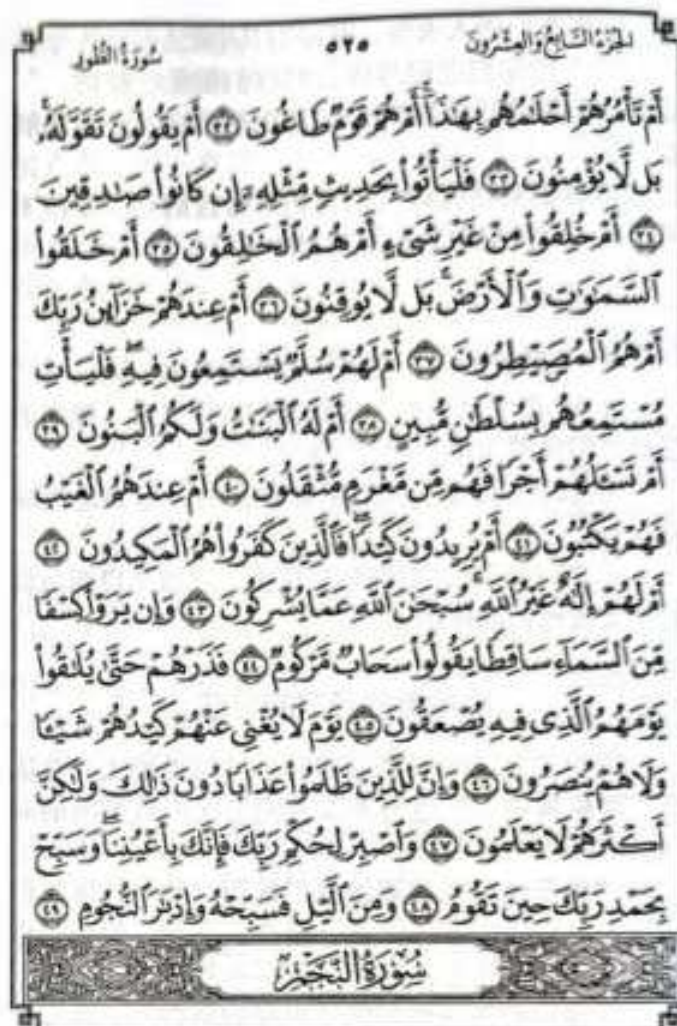 الجزء السابع والعشرون
٥٢٥
سورة الطور
أَمْ تَأْمُرُهُمْ أَحْلَٰمُهُم بِهَٰذَآ ۚ أَمْ هُمْ قَوْمٌ طَاغُونَ ٣٢ أَمْ يَقُولُونَ تَقَوَّلَهُۥ ۚ
بَل لَّا يُؤْمِنُونَ ٣٣ فَلْيَأْتُوا۟ بِحَدِيثٍ مِّثْلِهِۦٓ إِن كَانُوا۟ صَٰدِقِينَ
٣٤ أَمْ خُلِقُوا۟ مِنْ غَيْرِ شَىْءٍ أَمْ هُمُ ٱلْخَٰلِقُونَ ٣٥ أَمْ خَلَقُوا۟
ٱلسَّمَٰوَٰتِ وَٱلْأَرْضَ ۚ بَل لَّا يُوقِنُونَ ٣٦ أَمْ عِندَهُمْ خَزَآئِنُ رَبِّكَ
أَمْ هُمُ ٱلْمُصَۣيْطِرُونَ ٣٧ أَمْ لَهُمْ سُلَّمٌ يَسْتَمِعُونَ فِيهِ ۖ فَلْيَأْتِ
مُسْتَمِعُهُم بِسُلْطَٰنٍ مُّبِينٍ ٣٨ أَمْ لَهُ ٱلْبَنَٰتُ وَلَكُمُ ٱلْبَنُونَ ٣٩
أَمْ تَسْـَٔلُهُمْ أَجْرًا فَهُم مِّن مَّغْرَمٍ مُّثْقَلُونَ ٤٠ أَمْ عِندَهُمُ ٱلْغَيْبُ
فَهُمْ يَكْتُبُونَ ٤١ أَمْ يُرِيدُونَ كَيْدًا ۖ فَٱلَّذِينَ كَفَرُوا۟ هُمُ ٱلْمَكِيدُونَ ٤٢
أَمْ لَهُمْ إِلَٰهٌ غَيْرُ ٱللَّهِ ۚ سُبْحَٰنَ ٱللَّهِ عَمَّا يُشْرِكُونَ ٤٣ وَإِن يَرَوْا۟ كِسْفًا
مِّنَ ٱلسَّمَآءِ سَاقِطًا يَقُولُوا۟ سَحَابٌ مَّرْكُومٌ ٤٤ فَذَرْهُمْ حَتَّىٰ يُلَٰقُوا۟
يَوْمَهُمُ ٱلَّذِى فِيهِ يُصْعَقُونَ ٤٥ يَوْمَ لَا يُغْنِى عَنْهُمْ كَيْدُهُمْ شَيْـًٔا
وَلَا هُمْ يُنصَرُونَ ٤٦ وَإِنَّ لِلَّذِينَ ظَلَمُوا۟ عَذَابًا دُونَ ذَٰلِكَ وَلَٰكِنَّ
أَكْثَرَهُمْ لَا يَعْلَمُونَ ٤٧ وَٱصْبِرْ لِحُكْمِ رَبِّكَ فَإِنَّكَ بِأَعْيُنِنَا ۖ وَسَبِّحْ
بِحَمْدِ رَبِّكَ حِينَ تَقُومُ ٤٨ وَمِنَ ٱلَّيْلِ فَسَبِّحْهُ وَإِدْبَٰرَ ٱلنُّجُومِ ٤٩
سُورَةُ النَّجْمِ